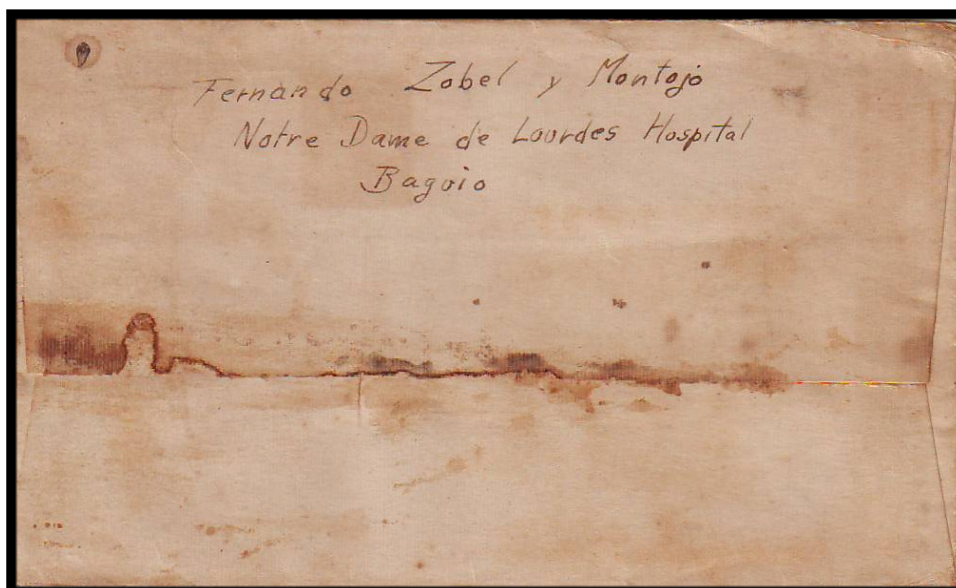 Fernando Zobel y Montojo
Notre Dame de Lourdes Hospital
Baguio